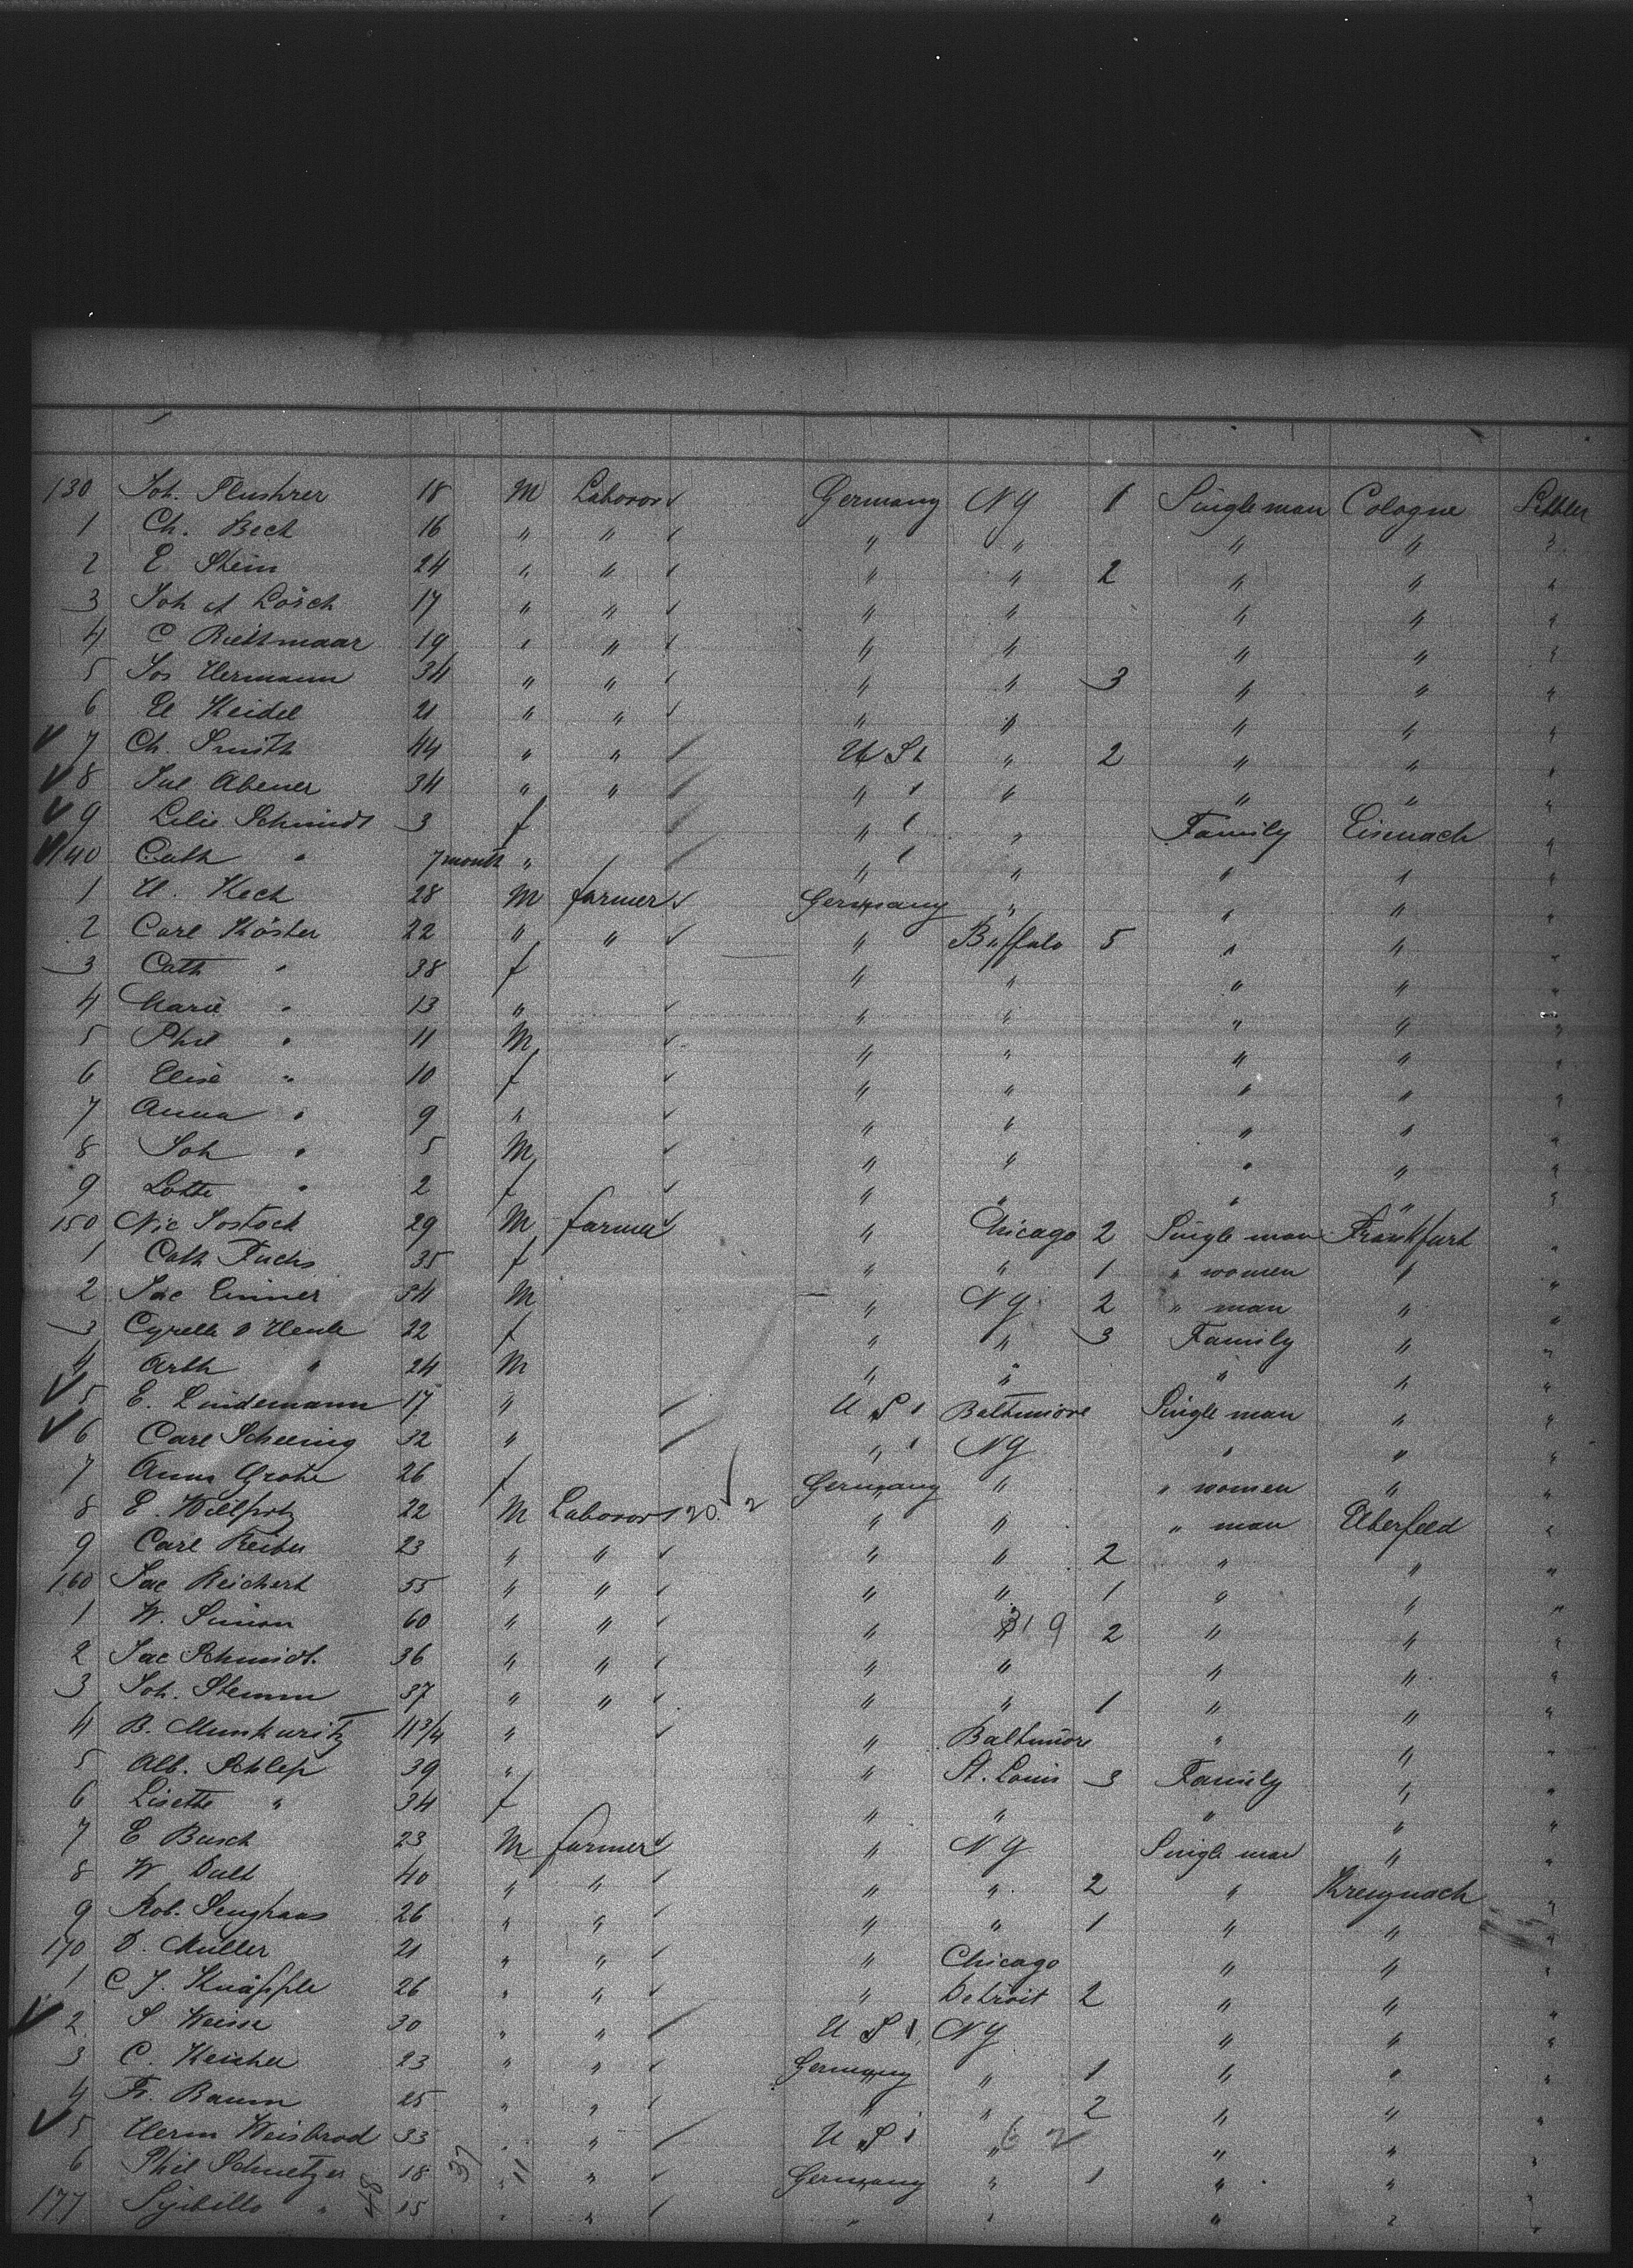 130 Joh. Flushrer 18 M Laboror Germany NY 1 Single man Cologne Settler
1 Ch. Bech 16 " " " " " " "
2 E Stein 24 " " " " 2 " " "
3 Joh A Lösch 17 " " " " " " "
4 C Rittmaar 19 " " " " " " "
5 Jos Hermann 34 " " " " 3 " " "
6 H Heidel 21 " " " " " " "
7 Ch. Smith 44 " " U St " 2 " " "
8 Jul Abener 34 " " " " " " "
9 Lilie Schmidt 3 f " " Family Eisenach "
140 Cath " 7 month " " " " " "
1 H. Kech 28 M farmer Germany " " " "
2 Carl Köster 22 " " " Buffalo 5 " " "
3 Cath " 38 f " " " " "
4 Marie " 13 " " " " " "
5 Phil " 11 M " " " " "
6 Elise " 10 f " " " " "
7 Anna " 9 " " " " " "
8 Joh " 5 M " " " " "
9 Lotte " 2 f " " " " "
150 Nic Sostock 29 M farmer " Chicago 2 Single man Frankfurt "
1 Cath Fuchs 35 f " " 1 " women " "
2 Jac Einner 34 M " NY 2 " man " "
3 Cyrelle D Heule 22 f " " 3 Family " "
4 Arth " 24 M " " " " "
5 E. Lindemann 17 " U S Baltimore Single man " "
6 Carl Scheeing 32 " " NY " " "
7 Anna Grohe 26 f Germany " " women " "
8 E. Willfritz 22 M Laboror 120 2 " " " man Elberfeld "
9 Carl Reiber 23 " " " " 2 " " "
160 Jac Reichert 55 " " " " 1 " " "
1 W. Simon 60 " " " 319 2 " " "
2 Jac Schmidt 36 " " " " " " "
3 Joh. Stemm 37 " " " " 1 " " "
4 B. Munkuritz 11 3/4 " " Baltimore " " "
5 Alb. Schlep 39 " " St. Louis 3 Family " "
6 Lisette " 34 f " " " " "
7 E Busch 23 M farmer " NY Single man " "
8 W Dult 40 " " " " 2 " Kreuznach "
9 Rob. Senghaas 26 " " " " 1 " " "
170 D. Müller 21 " " " Chicago " " "
1 C J. Knäpple 26 " " " Detroit 2 " " "
2 S Weisse 30 " " U S NY " " "
3 C. Keicher 23 " " Germany " 1 " " "
4 Fr. Baum 25 " " " " 2 " " "
5 Herm Weisbrod 33 " " U S " " " "
6 Phil Schnetzer 18 37 11 " " Germany " 1 " " "
177 Syibille " 48 15 " " " " " " "